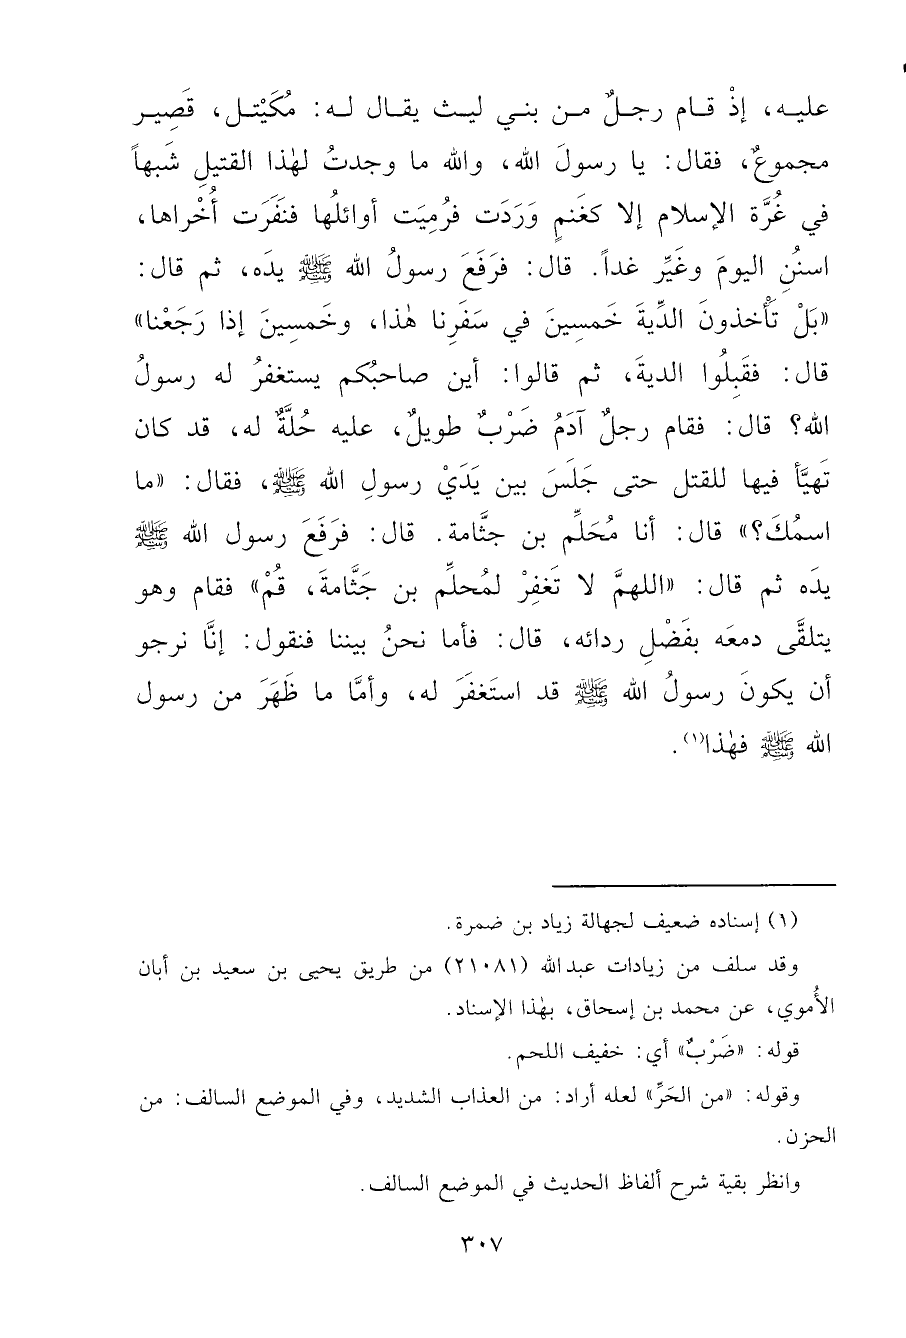 عليه، إذْ قام رجلٌ من بني ليث يقال له: مُكَيْتل، قَصِير
مجموعٌ، فقال: يا رسولَ الله، والله ما وجدتُ لهٰذا القتيلِ شَبهاً
في غُرَّة الإسلام إلا كغَنمٍ وَرَدَت فرُمِيَت أوائلُها فنَفَرَت أُخْراها،
اسنُنِ اليومَ وغَيِّر غداً. قال: فرَفَعَ رسولُ الله ﷺ يدَه، ثم قال:
«بَلْ تَأْخذونَ الدِّيةَ خَمسِينَ في سَفَرِنا هٰذا، وخَمسِينَ إذا رَجَعْنا»
قال: فقَبِلُوا الديةَ، ثم قالوا: أين صاحبُكم يستغفرُ له رسولُ
الله؟ قال: فقام رجلٌ آدَمُ ضَرْبٌ طويلٌ، عليه حُلَّةٌ له، قد كان
تَهيَّأ فيها للقتل حتى جَلَسَ بين يَدَيْ رسولِ الله ﷺ، فقال: «ما
اسمُكَ؟» قال: أنا مُحَلِّم بن جثَّامة. قال: فرَفَعَ رسول الله ﷺ
يدَه ثم قال: «اللهمَّ لا تَغفِرْ لمُحلِّم بن جَثَّامةَ، قُمْ» فقام وهو
يتلقَّى دمعَه بفَضْلِ ردائه، قال: فأما نحنُ بيننا فنقول: إنَّا نرجو
أن يكونَ رسولُ الله ﷺ قد استَغفَرَ له، وأمَّا ما ظَهَرَ من رسول
الله ﷺ فهٰذا(١).
(١) إسناده ضعيف لجهالة زياد بن ضمرة.
وقد سلف من زيادات عبدالله (٢١٠٨١) من طريق يحيى بن سعيد بن أبان
الأُموي، عن محمد بن إسحاق، بهٰذا الإسناد.
قوله: «ضَرْبٌ» أي: خفيف اللحم.
وقوله: «من الحَرِّ» لعله أراد: من العذاب الشديد، وفي الموضع السالف: من
الحزن.
وانظر بقية شرح ألفاظ الحديث في الموضع السالف.
٣٠٧